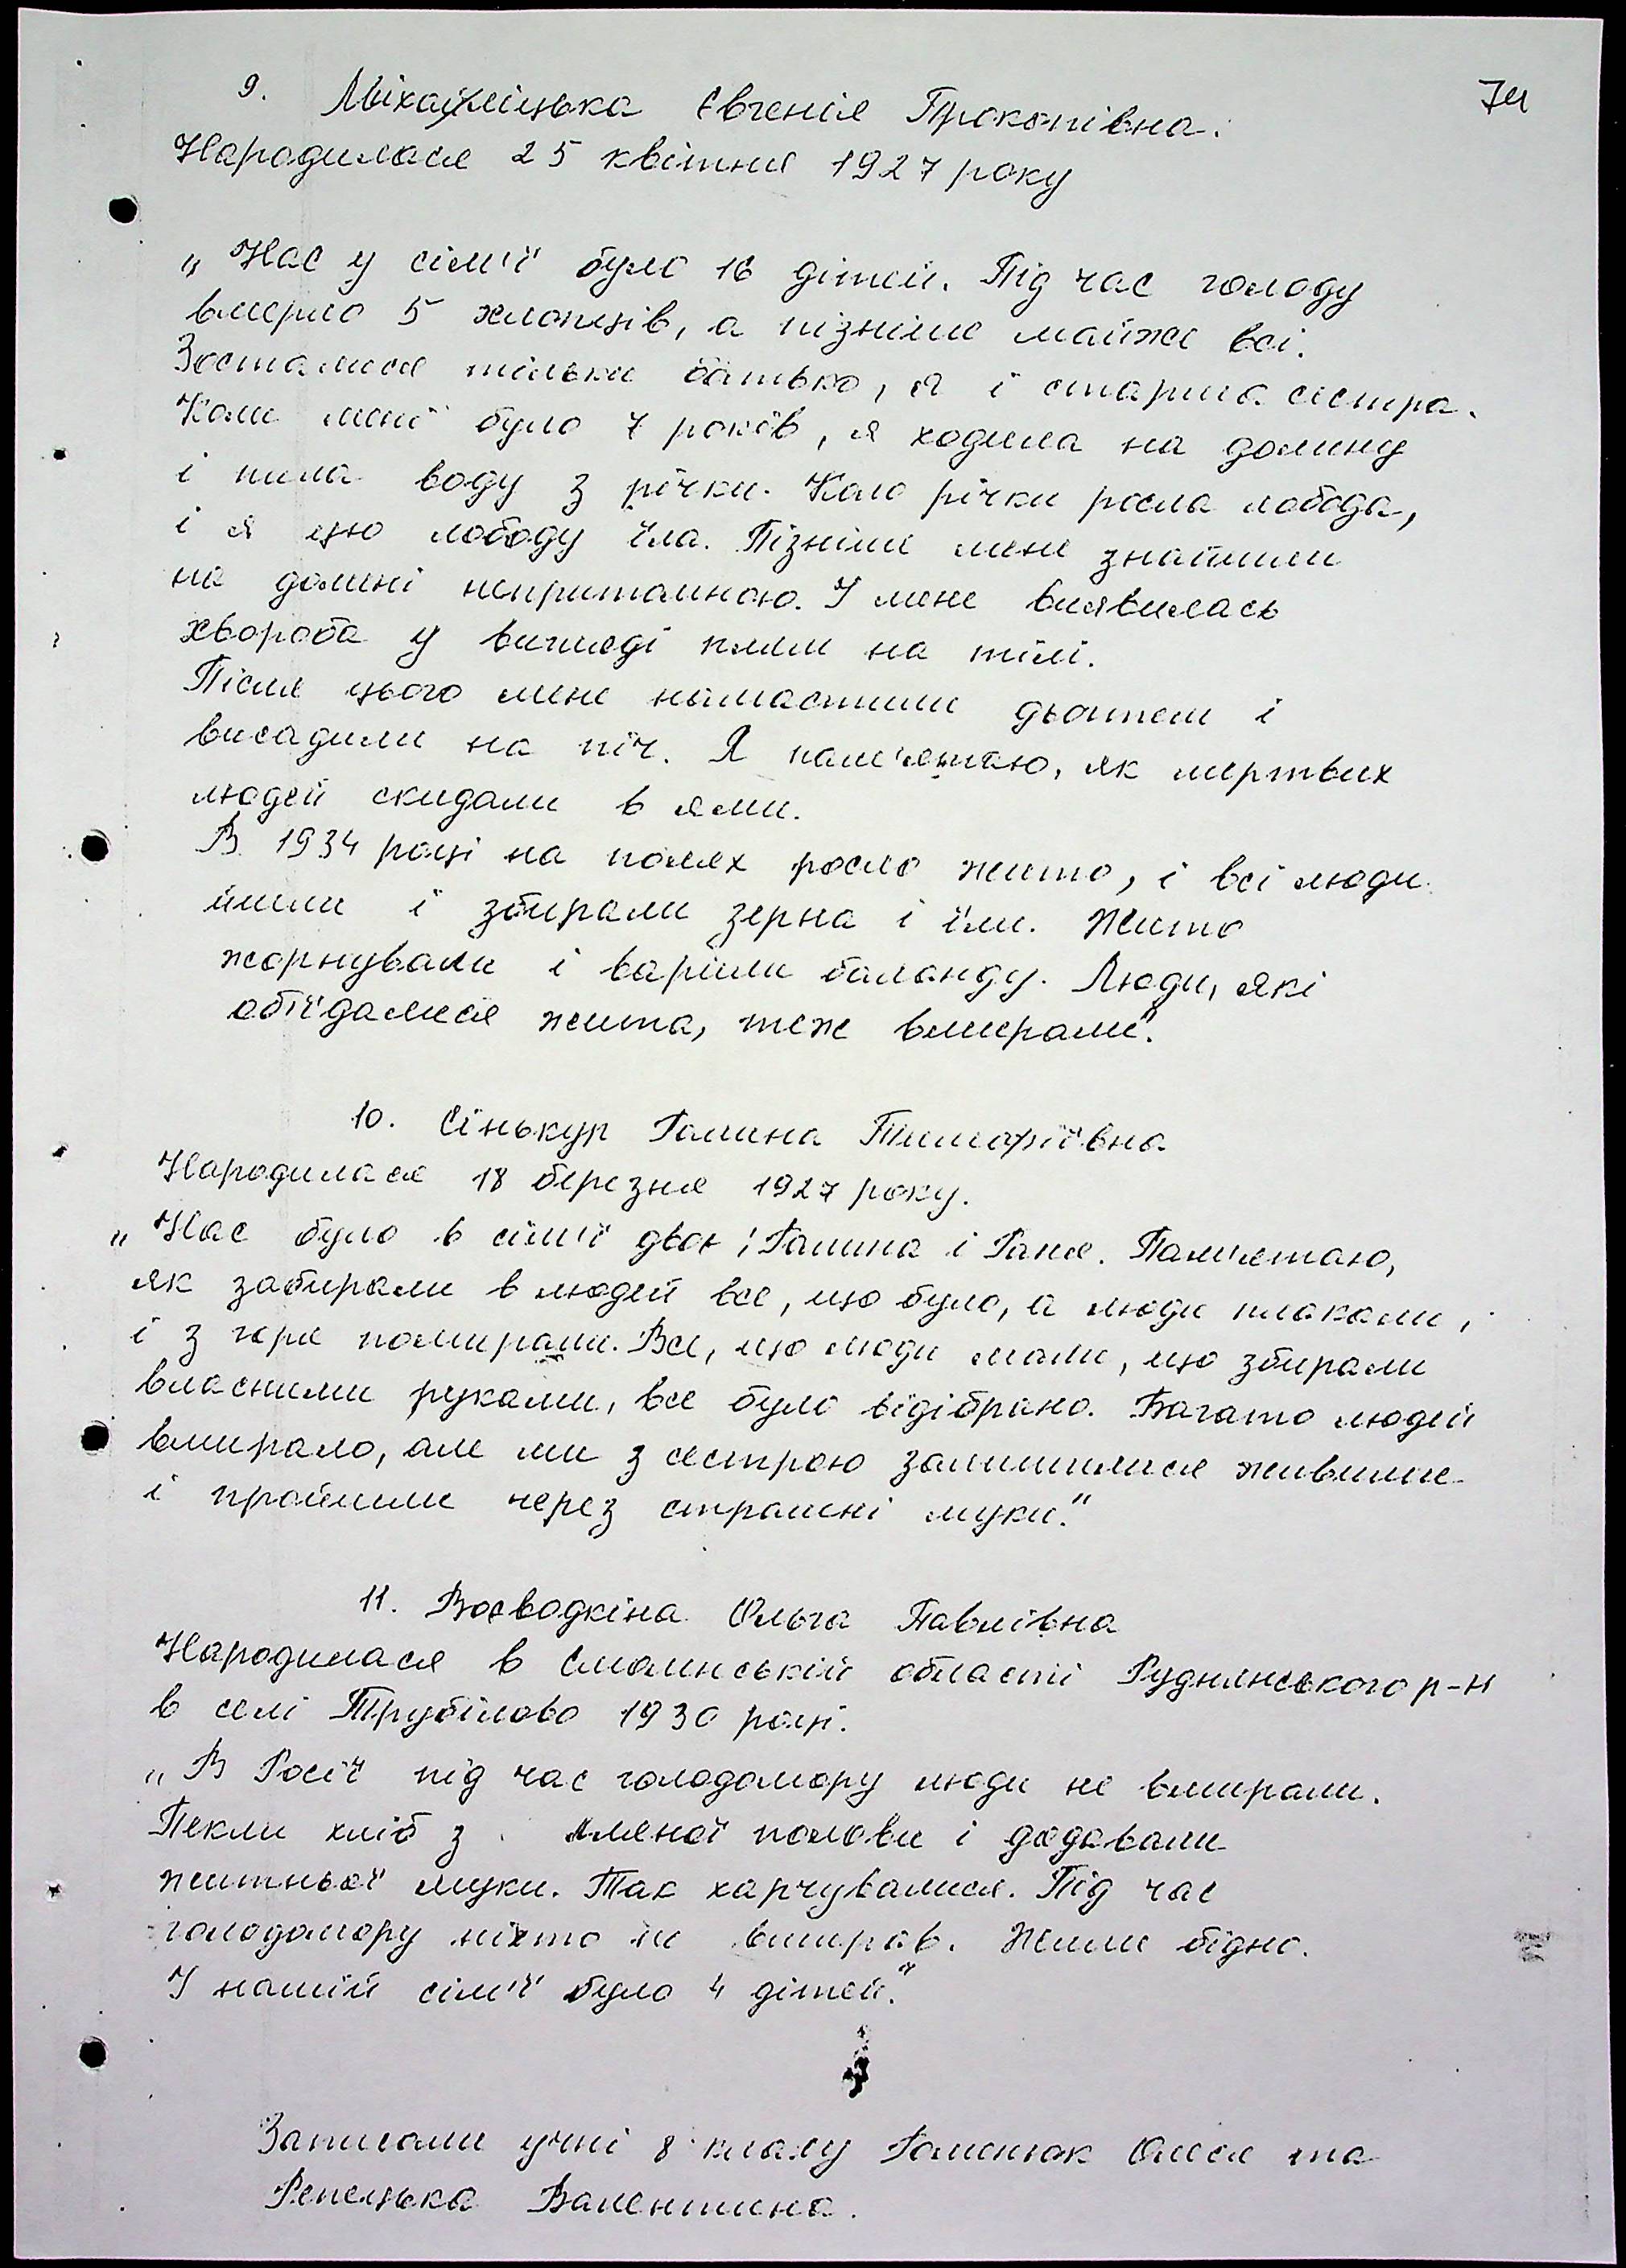 74
9. Міхайліцька Євгенія Прокопівна.
Народилася 25 квітня 1927 року
„Нас у сім'ї було 16 дітей. Під час голоду
вмерло 5 хлопців, а пізніше майже всі.
Зосталися тільки батько, я і старша сестра.
Коли мені було 7 років, я ходила на долину
і пила воду з річки. Коло річки росла лобода,
і я цю лободу їла. Пізніше мене знайшли
на долині непритомною. У мене виявилась
хвороба у вигляді плям на тілі.
Після цього мене намастили дьогтем і
висадили на піч. Я пам'ятаю, як мертвих
людей скидали в ями.
В 1934 році на полях росло жито, і всі люди
йшли і збирали зерна і їли. Жито
жорнували і варили баланду. Люди, які
об'їдалися жита, теж вмирали".
10. Сінькур Галина Тимофіївна
Народилася 18 березня 1927 року.
„Нас було в сім'ї двоє: Галина і Ганя. Пам'ятаю,
як забирали в людей все, що було, а люди плакали,
і з горя помирали. Все, що люди мали, що збирали
власними руками, все було відібрано. Багато людей
вмирало, але ми з сестрою залишилися живими
і пройшли через страшні муки."
11. Воєводкіна Ольга Павлівна
Народилася в Смолинській області Руднянського р-н
в селі Трубілово 1930 році.
„В Росії під час голодомору люди не вмирали.
Пекли хліб з полови і додавали
житньої муки. Так харчувалися. Під час
голодомору ніхто не вмирав. Жили бідно.
У нашій сім'ї було 4 дітей."
Записали учні 8 класу Гоменюк Олеся та
Репецька Валентина.